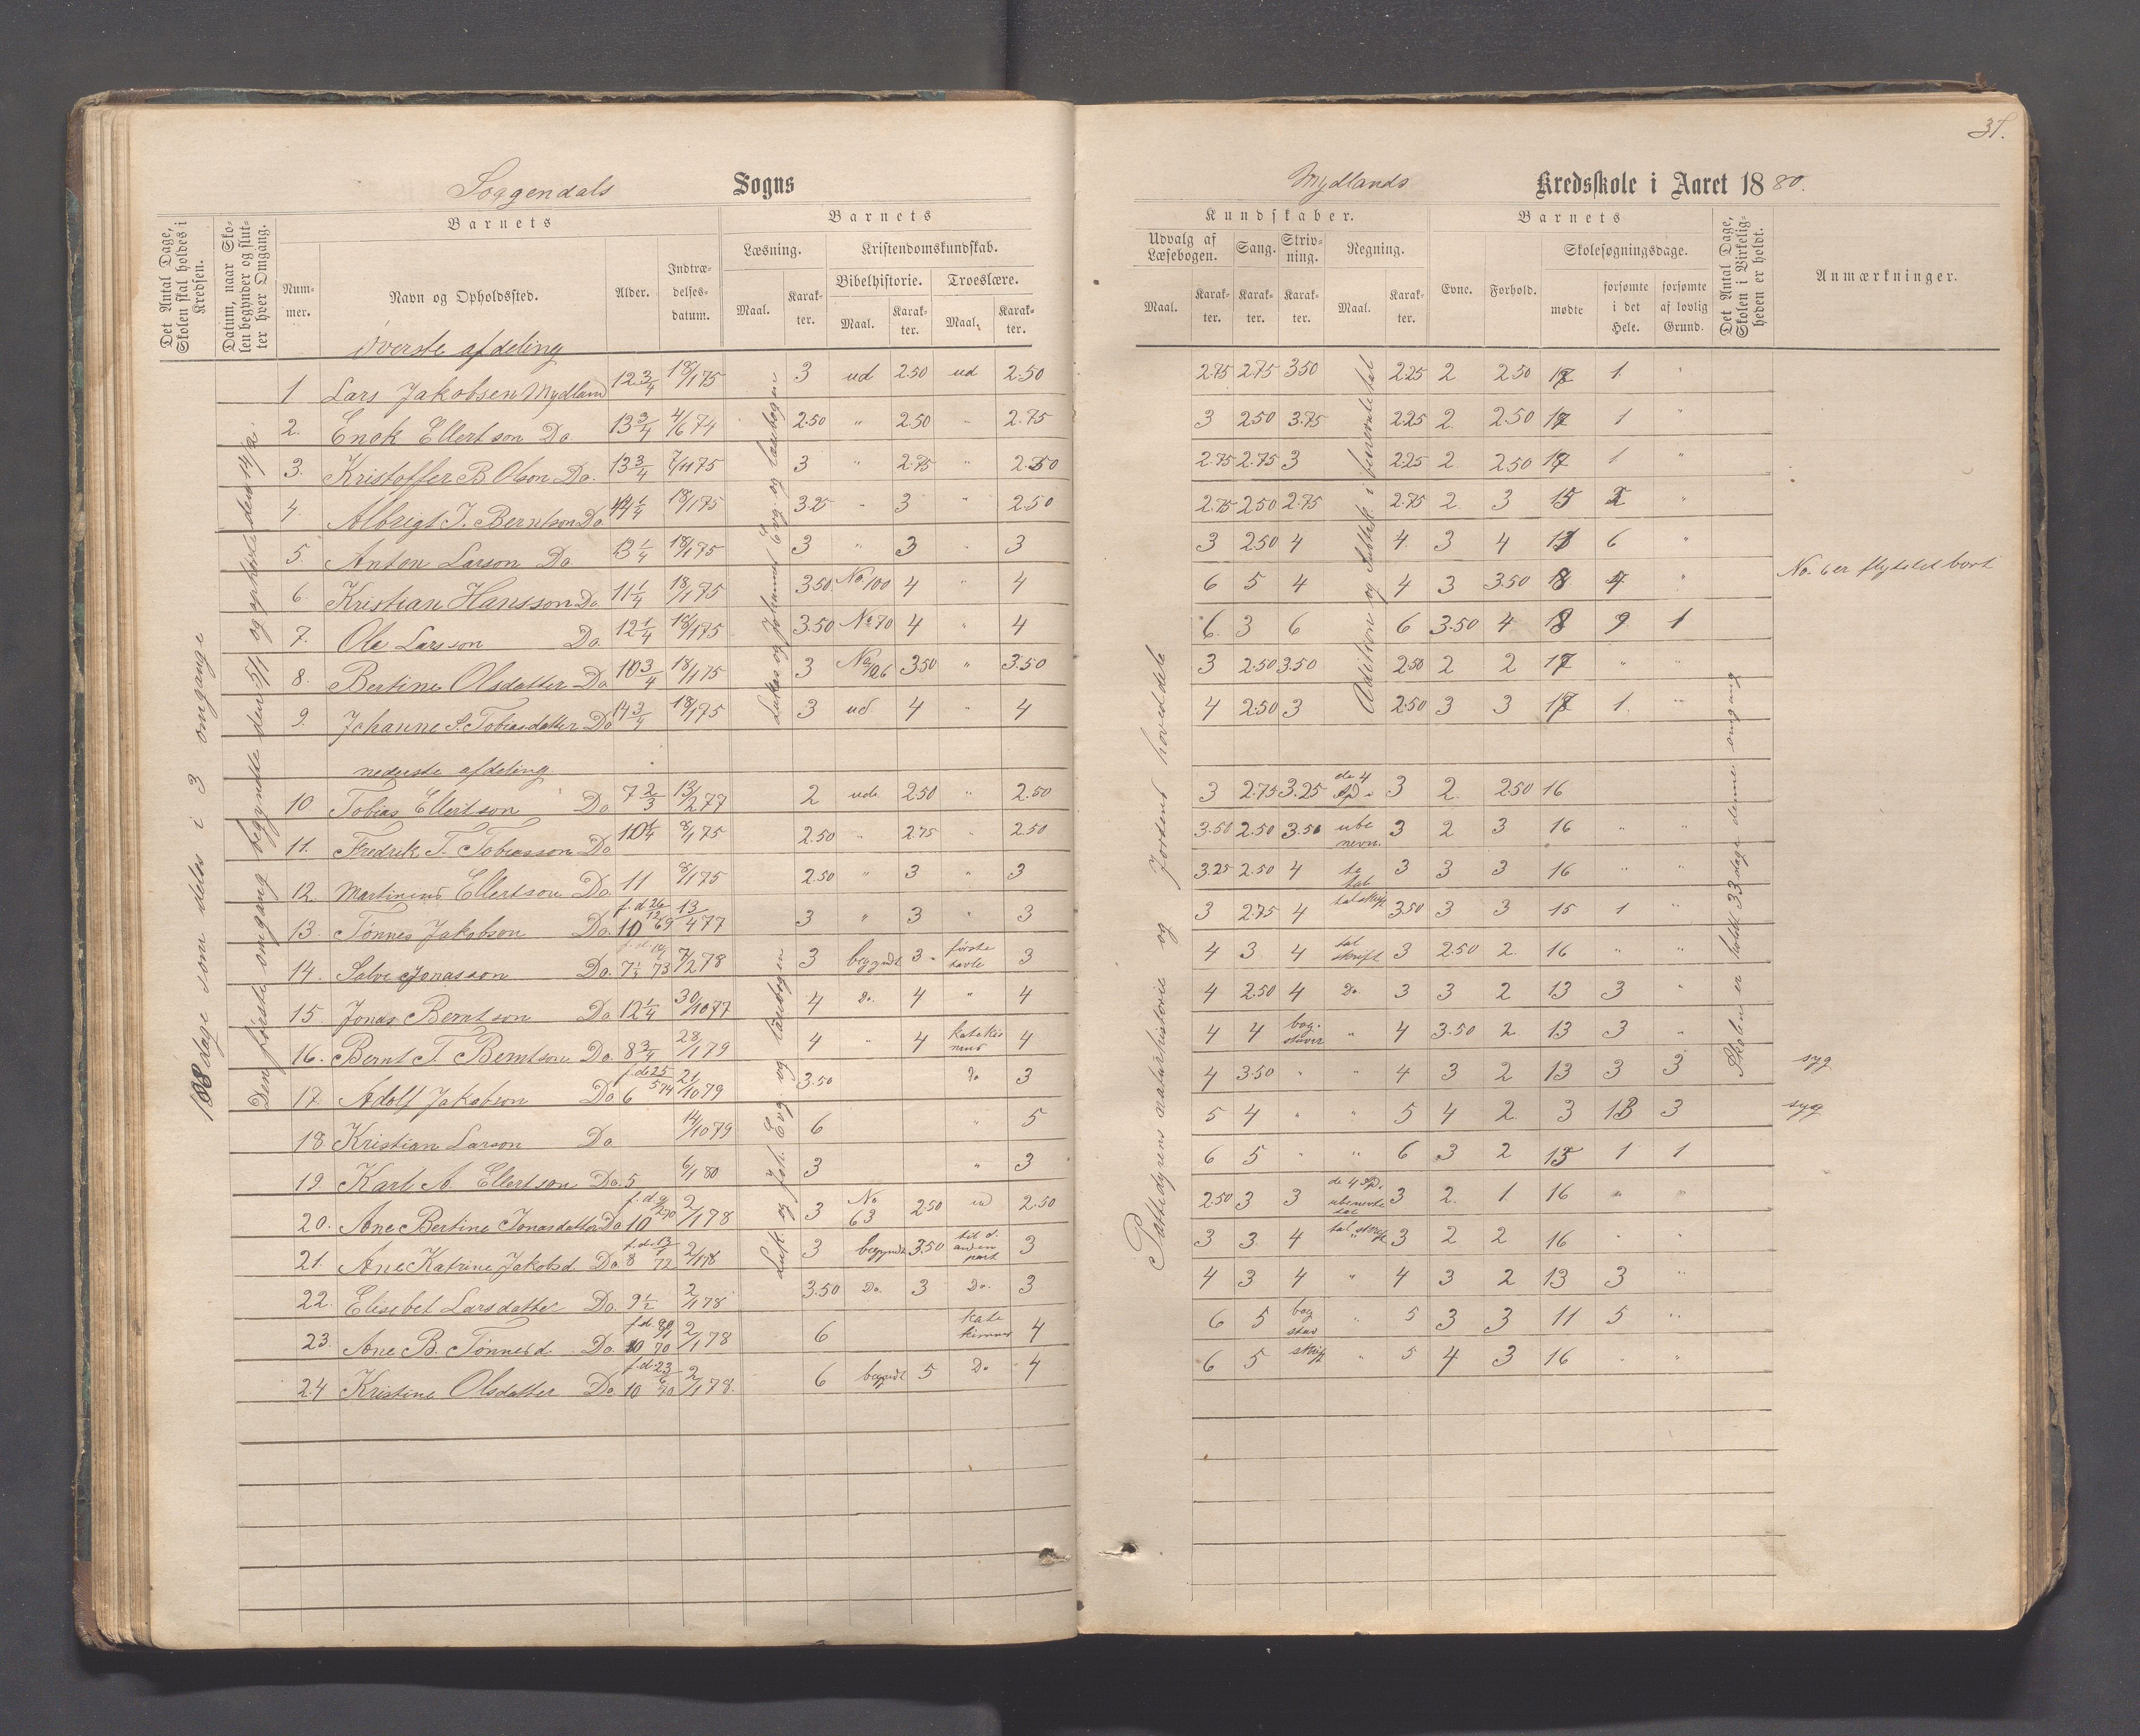 31.
Soggendals Sogns
Mydlands Kredsskole i Aaret 1880.
Det Antal Dage, Skolen skal holdes i Kredsen.
Datum, naar Skolen begynder og slutter hver Omgang.
Barnets
Nummer.
Navn og Opholdssted.
Alder.
Indtrædelsesdatum.
Barnets
Læsning.
Maal.
Karakter.
Kristendomskundskab.
Bibelhistorie.
Maal.
Karakter.
Troeslære.
Maal.
Karakter.
Kundskaber.
Udvalg af Læsebogen.
Maal.
Karakter.
Sang.
Karakter.
Skrivning.
Karakter.
Regning.
Maal.
Karakter.
Barnets
Evne.
Forhold.
Skolesøgningsdage.
mødte
forsømte i det Hele.
forsømte af lovlig Grund.
Det Antal Dage, Skolen i Virkeligheden er holdt.
Anmærkninger.
108 dage som deles i 3 omgange
Den første omgang begyndte den 5/1 og ophørte den 14/2.
Lukas og Johannes Evg. og læsebogen
Luk. og Joh. Evg. og læsebogen
Pattedyrens naturhistorie og Jordens hoveddele
Addition og Subtrak. i benevnte tal
Skolen er holdt 33 dage denne omgang
øverste afdeling
1 Lars Jakobsen Mydland 12 3/4 18/1 75 3 ud 2.50 ud 2.50 2.75 2.75 3.50 2.25 2 2.50 17 1 "
2. Enok Ellertson Do 13 3/4 4/6 74 2.50 " 2.50 " 2.75 3 2.50 3.75 2.25 2 2.50 17 1 "
3. Kristoffer B. Olson Do. 13 3/4 7/11 75 3 " 2.75 " 2.50 2.75 2.75 3 2.25 2 2.50 17 1 "
4. Albrigt T. Berntson Do 14 1/4 18/1 75 3.25 " 3 " 2.50 2.75 2.50 2.75 2.75 2 3 15 "
5. Anton Larson Do 13 1/4 18/1 75 3 " 3 " 3 3 2.50 4 4 3 4 6 "
6. Kristian Hansson Do 11 1/4 18/1 75 3.50 No 100 4 " 4 6 5 4 4 3 3.50 "
No. 6 er flyttet bort
7. Ole Larsson Do. 12 1/4 18/1 75 3.50 No 70 4 " 4 6. 3 6 6 3.50 4 9 1
8. Bertine Olsdatter Do 10 3/4 18/1 75 3 3.50 " 3.50 3 2.50 3.50 2.50 2 2 17 " "
9. Johanne S. Tobiasdatter Do 14 3/4 18/1 75 3 ud 4 " 4 4 2.50 3 2.50 3 3 17 1. "
nederste afdeling
10 Tobias Ellertson Do 7 2/3 13/2 77 2 ude 2.50 " 2.50 3 2.75 3.25 de 4 Sp. 3 2. 2.50 16
11. Fredrik T. Tobiasson Do 10 1/4 8/1 75 2.50 " 2.75 " 2.50 3.50 2.50 3.50 ube nevn. 3 2 3 16 " "
12. Martinius Ellertson Do. 11 8/1 75 2.50 " 3 " 3 3.25 2.50 4 te tal 3 3 3 16 " "
13. Tønnes Jakobson Do. 10 f. d. 26/12 69 13/4 77 3 " 3 " 3 3 2.75 4 talskrift 3.50 3 3 15 1 "
14. Salve Jonasson Do. 7 1/3 7/2 78 3 begyndt 3 første tavle 3 4 3 4 tal skrift 3 2.50 2. 16 " "
15. Jonas Berntson Do 12 1/4 30/10 77 4 Do. 4 " 4 4 2.50 4 Do. 3 3 2 13 3 "
16. Bernt T. Berntson Do 8 3/4 28/1 79 4 " 4 katekismus 4 4 4 bogstaver " 4 3.50 2 13 3 "
17. Adolf Jakobson Do 6 f. d. 25/5 74 21/10 79 3.50 Do 3 4 3.50 " " 4 3 2 13 3 3 syg
18. Kristian Larson Do 14/10 79 6 " 5 5 4 " " 5 4 2 3 13 3 syg
19. Karl A. Ellertson Do. 5 6/1 80 3 " 3 6 5 " " 6 3 2 15 1 1
20. Ane Bertine Jonasdatter Do 10 f. d. 9/2 70 2/1 78 3 No 63 2.50 ud 2.50 2.50 3 3 de 4 Sp. ubenevnte tal 3 2. 1 16 " "
21. Ane Katrine Jakobsd. Do 8 f. d. 13/1 72 2/1 78 3 begyndt 3.50 til d. anden part 3 3 3 4 tal skrift 3 2 2 16 " "
22. Elisebet Larsdatter Do. 9 1/2 2/1 78 3.50 Do. 3 Do. 3 4 3 4 " 4 3 2 13 3 "
23. Ane B. Tønnesd. Do. 10 2/1 78 6 katekismus 4 6 5 bogstav " 5 3 3 11 5 "
24 Kristine Olsdatter Do 10 f. d. 23/6 70 2/1 78. 6 begyndt 5 Do 4 6 5 skrift " 5 4 3 16 " "